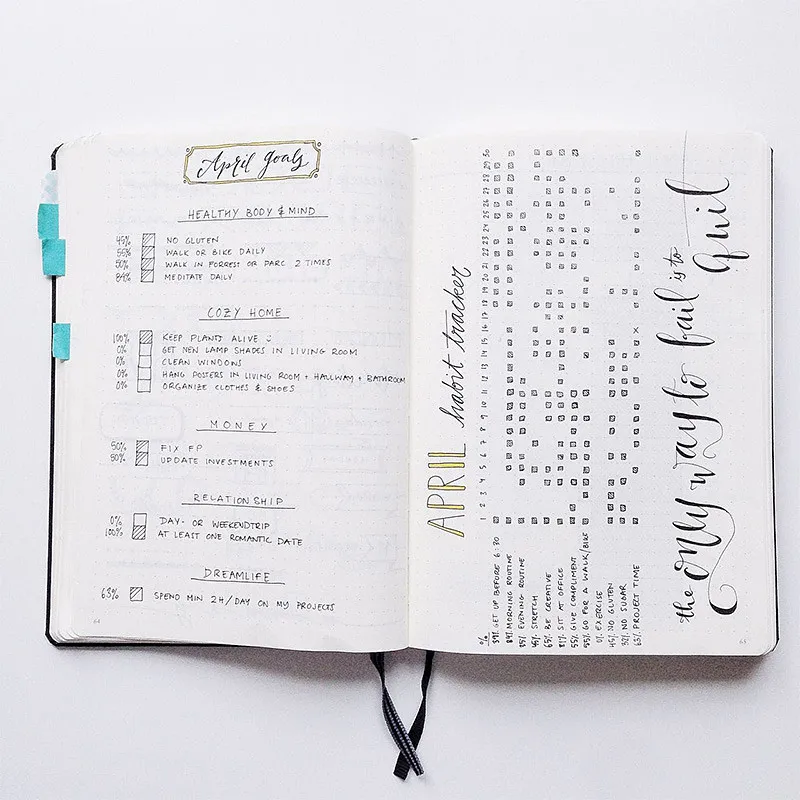 April goals
HEALTHY BODY & MIND
45% NO GLUTEN
55% WALK OR BIKE DAILY
50% WALK IN FORREST OR PARC 2 TIMES
84% MEDITATE DAILY
COZY HOME
100% KEEP PLANTS ALIVE
0% GET NEW LAMP SHADES IN LIVING ROOM
0% CLEAN WINDOWS
0% HANG POSTERS IN LIVING ROOM + HALLWAY + BATHROOM
0% ORGANIZE CLOTHES & SHOES
MONEY
50% FIX FP
50% UPDATE INVESTMENTS
RELATIONSHIP
0% DAY- OR WEEKENDTRIP
100% AT LEAST ONE ROMANTIC DATE
DREAMLIFE
63% SPEND MIN 2H/DAY ON MY PROJECTS
64
APRIL habit tracker
% 1 2 3 4 5 6 7 8 9 10 11 12 13 14 15 16 17 18 19 20 21 22 23 24 25 26 27 28 29 30
39% GET UP BEFORE 6:30
84% MORNING ROUTINE
35% EVENING ROUTINE
45% STRETCH
65% BE CREATIVE
81% SIT AT OFFICE
55% GIVE COMPLIMENT
55% GO FOR A WALK/BIKE
0% EXERCISE
45% NO GLUTEN
32% NO SUGAR
63% PROJECT TIME
the only way to fail is to
quit
65